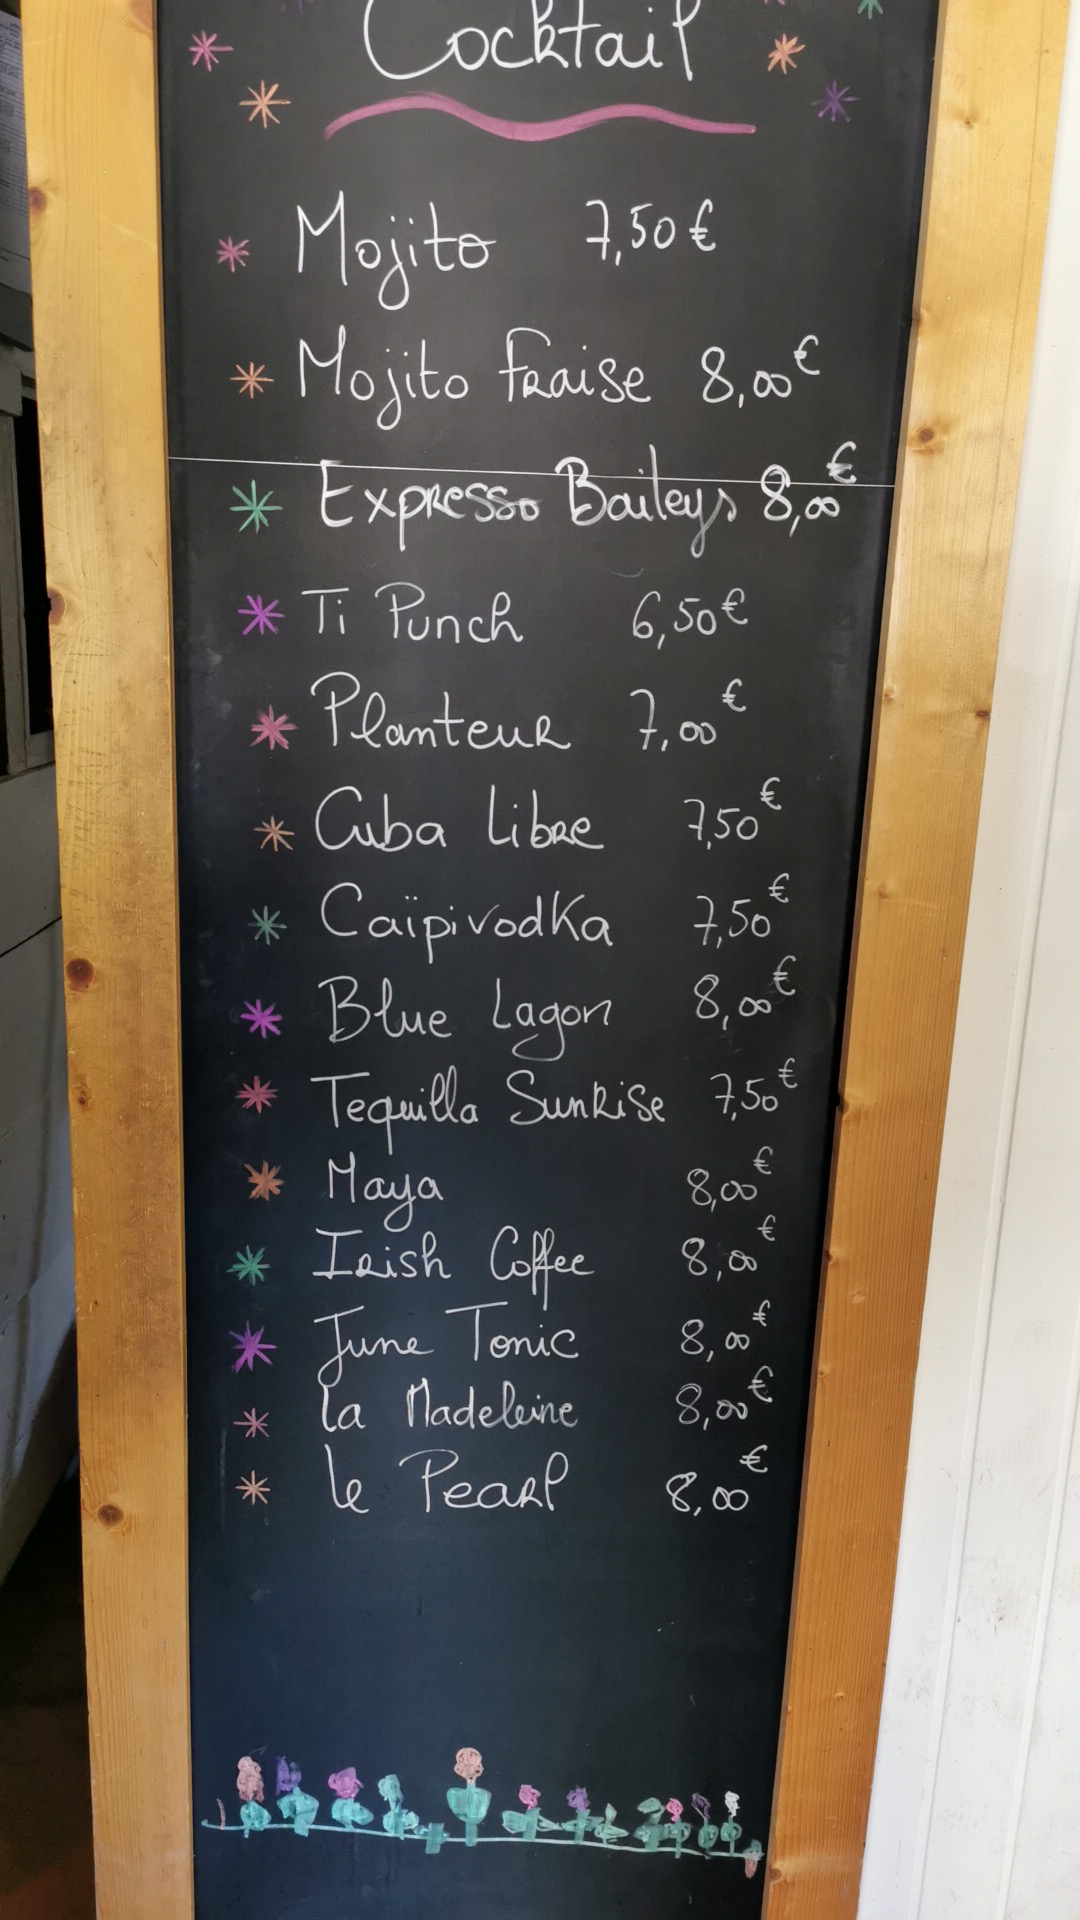 Cocktail
Mojito 7,50€
Mojito Fraise 8,00€
Expresso Baileys 8,00€
Ti Punch 6,50€
Planteur 7,00€
Cuba Libre 7,50€
Caïpivodka 7,50€
Blue Lagon 8,00€
Tequilla Sunrise 7,50€
Maya 8,00€
Irish Coffee 8,00€
June Tonic 8,00€
La Madeleine 8,00€
Le Pearl 8,00€